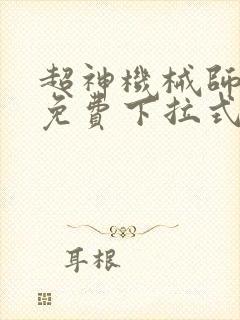 超神機械師
免費下拉式
耳根